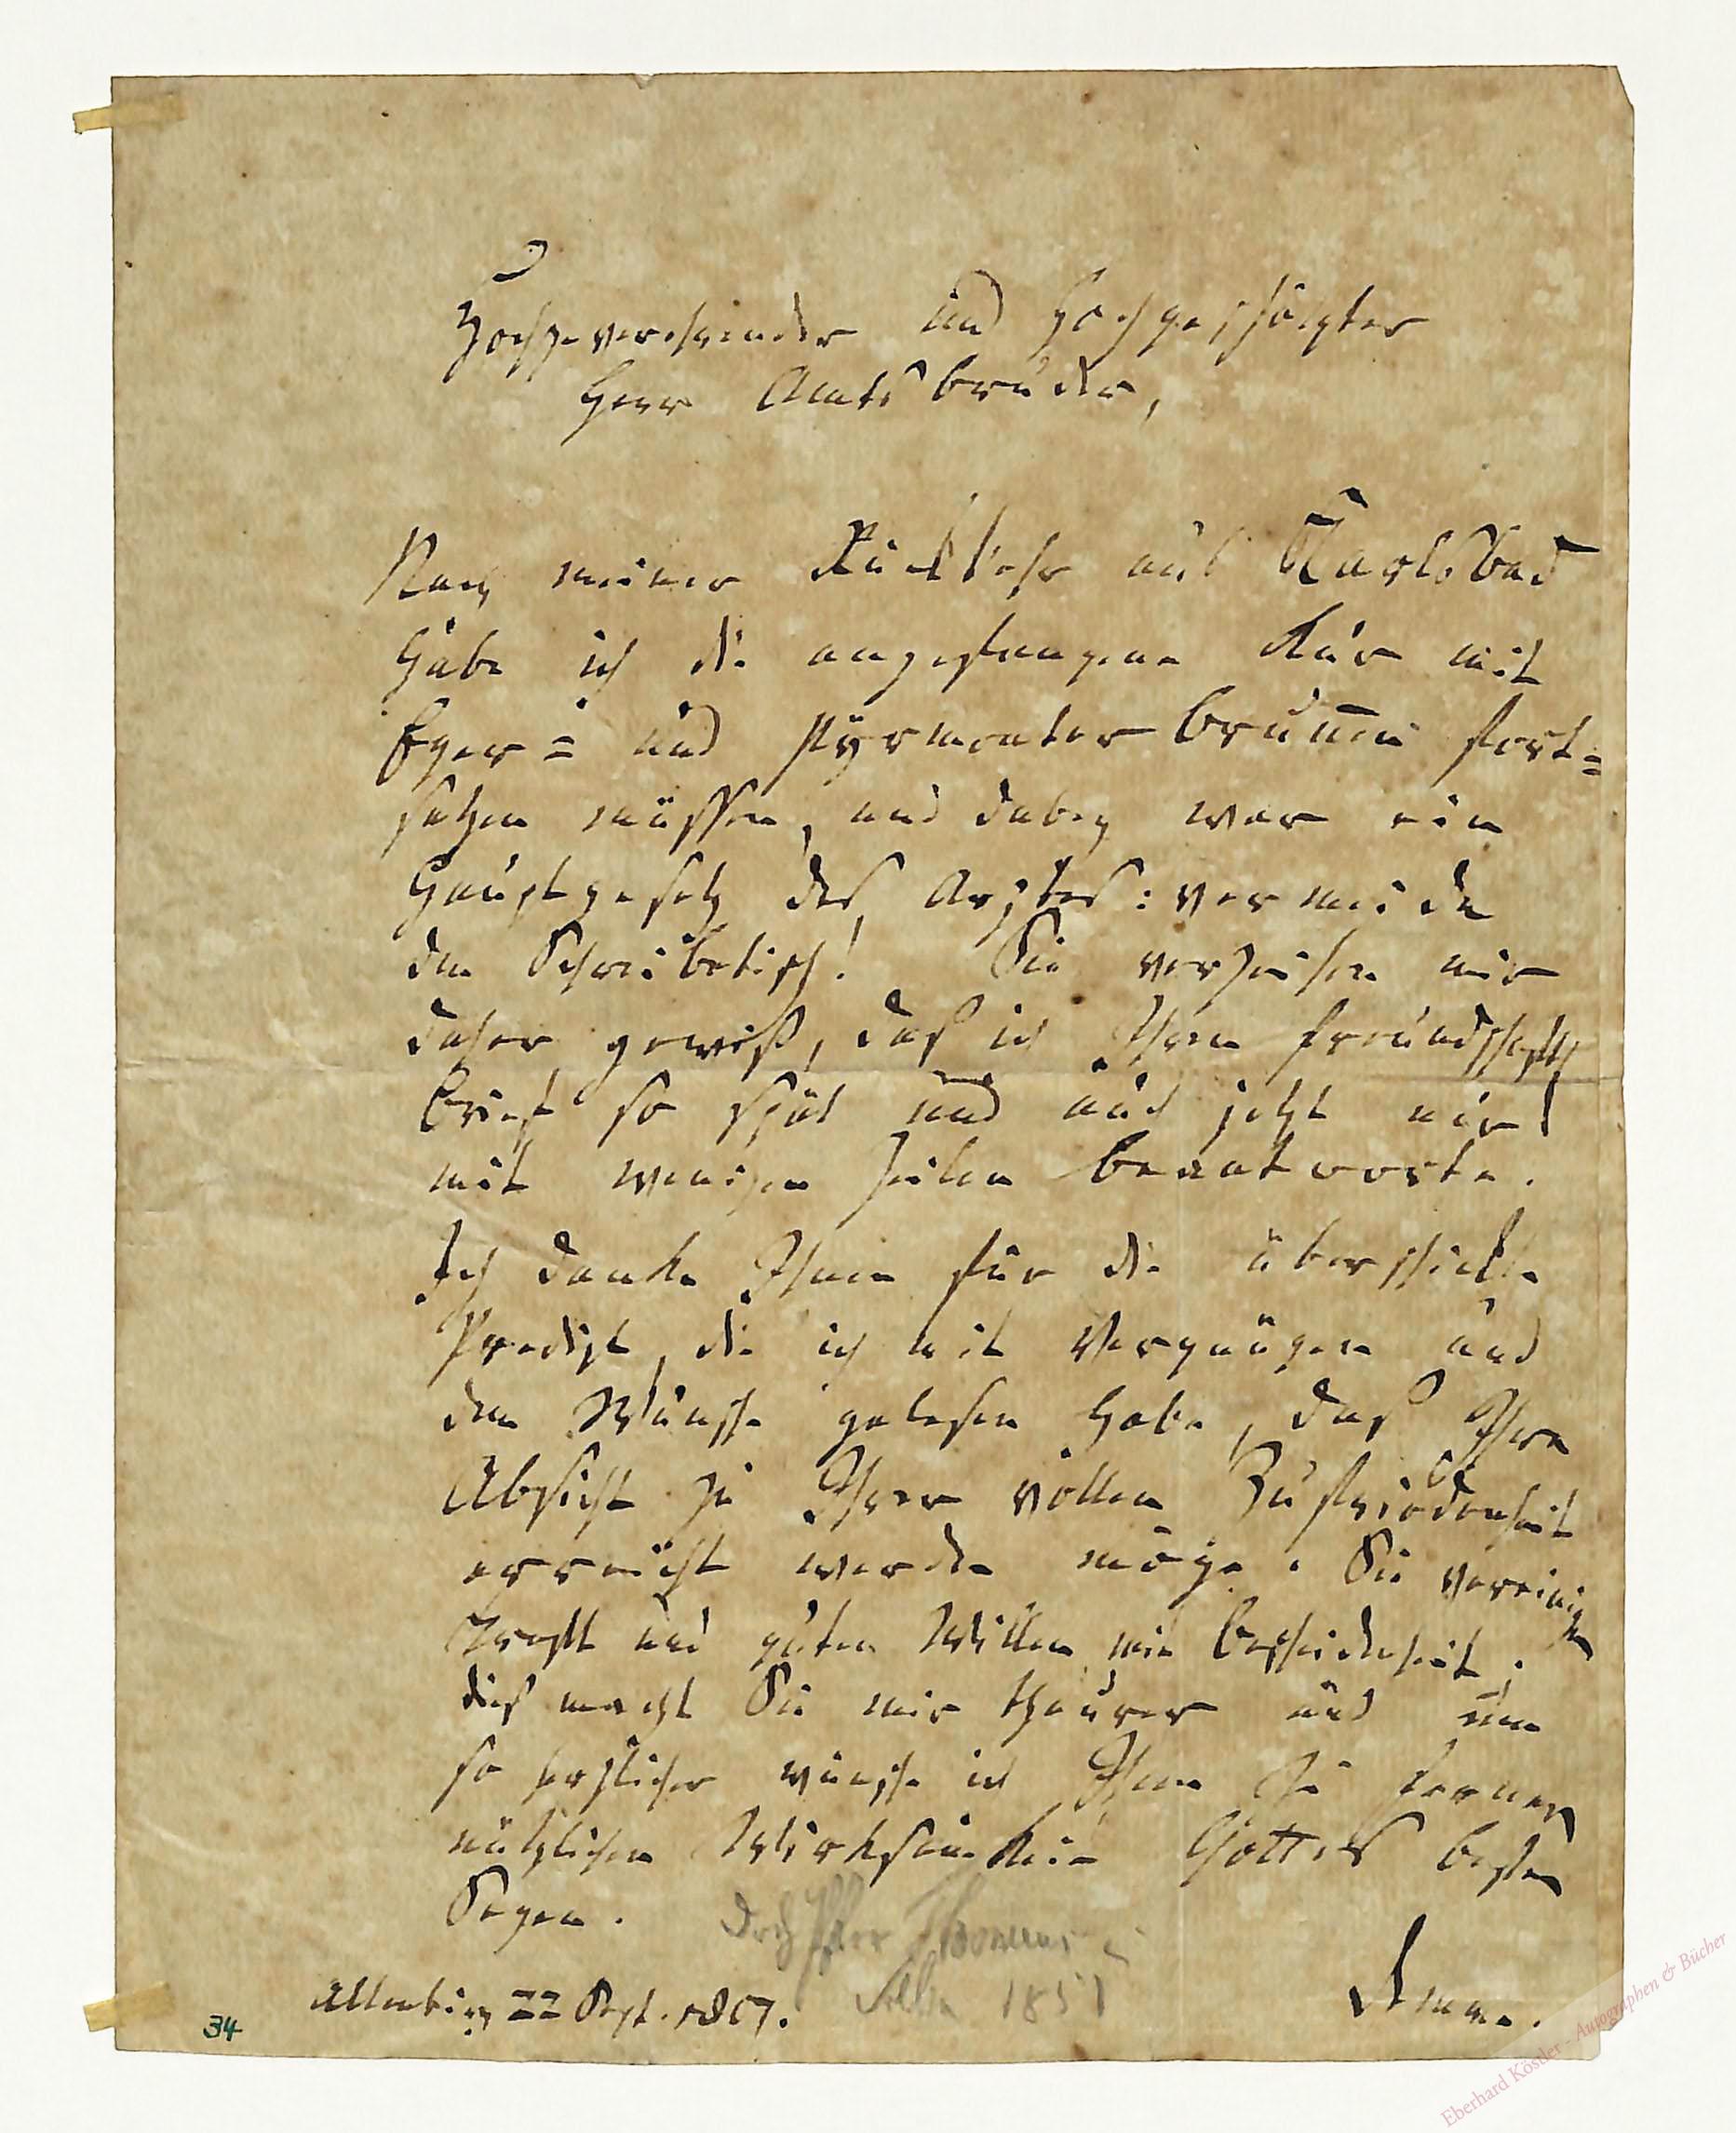 Hochzuverehrender und Hochgeschäzter
Herr Amtsbruder,
Nach meiner Rückkehr aus Karlsbad
habe ich die angefangene Kur mit
Eger= und Pyrmonter Brunnen fort=
setzen müssen, und dabey war ein
Hauptgesetz des Arztes: vermeide
den Schreibetisch! Sie verzeihen mir
daher gewiß, daß ich Ihren freundschaftl.
Brief so spät und auch jetzt nur
mit wenigen Zeilen beantworte.
Ich danke Ihnen für die überschickte
Predigt, die ich mit Vergnügen und
dem Wunsche gelesen habe, daß Ihre
Absicht zu Ihrer vollen Zufriedenheit
erreicht werden möge. Sie vereinigen
Kraft und guten Willen mit Bescheidenheit;
dieß macht Sie mir theurer und um
so herzlicher wünsche ich Ihnen zu ferner
nützlichen Wirksamkeit Gottes besten
Segen.
Altenburg 22 Sept. 1807.
Demme.
1851
34
Eberhard Köstler - Autographen & Bücher